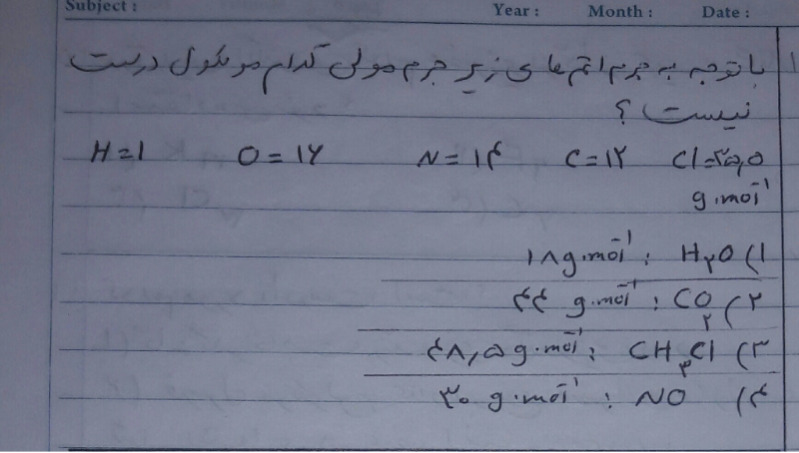 Subject : Year : Month : Date :
۱ با توجه به جرم اتم های زیر جرم مولی کدام مولکول درست
نیست ؟
H=۱ O=۱۶ N=۱۴ C=۱۲ Cl=۳۵,۵
g.mol⁻¹
۱) H₂O : ۱۸ g.mol⁻¹
۲) CO₂ : ۴۴ g.mol⁻¹
۳) CH₃Cl : ۴۸,۵ g.mol⁻¹
۴) NO : ۳۰ g.mol⁻¹